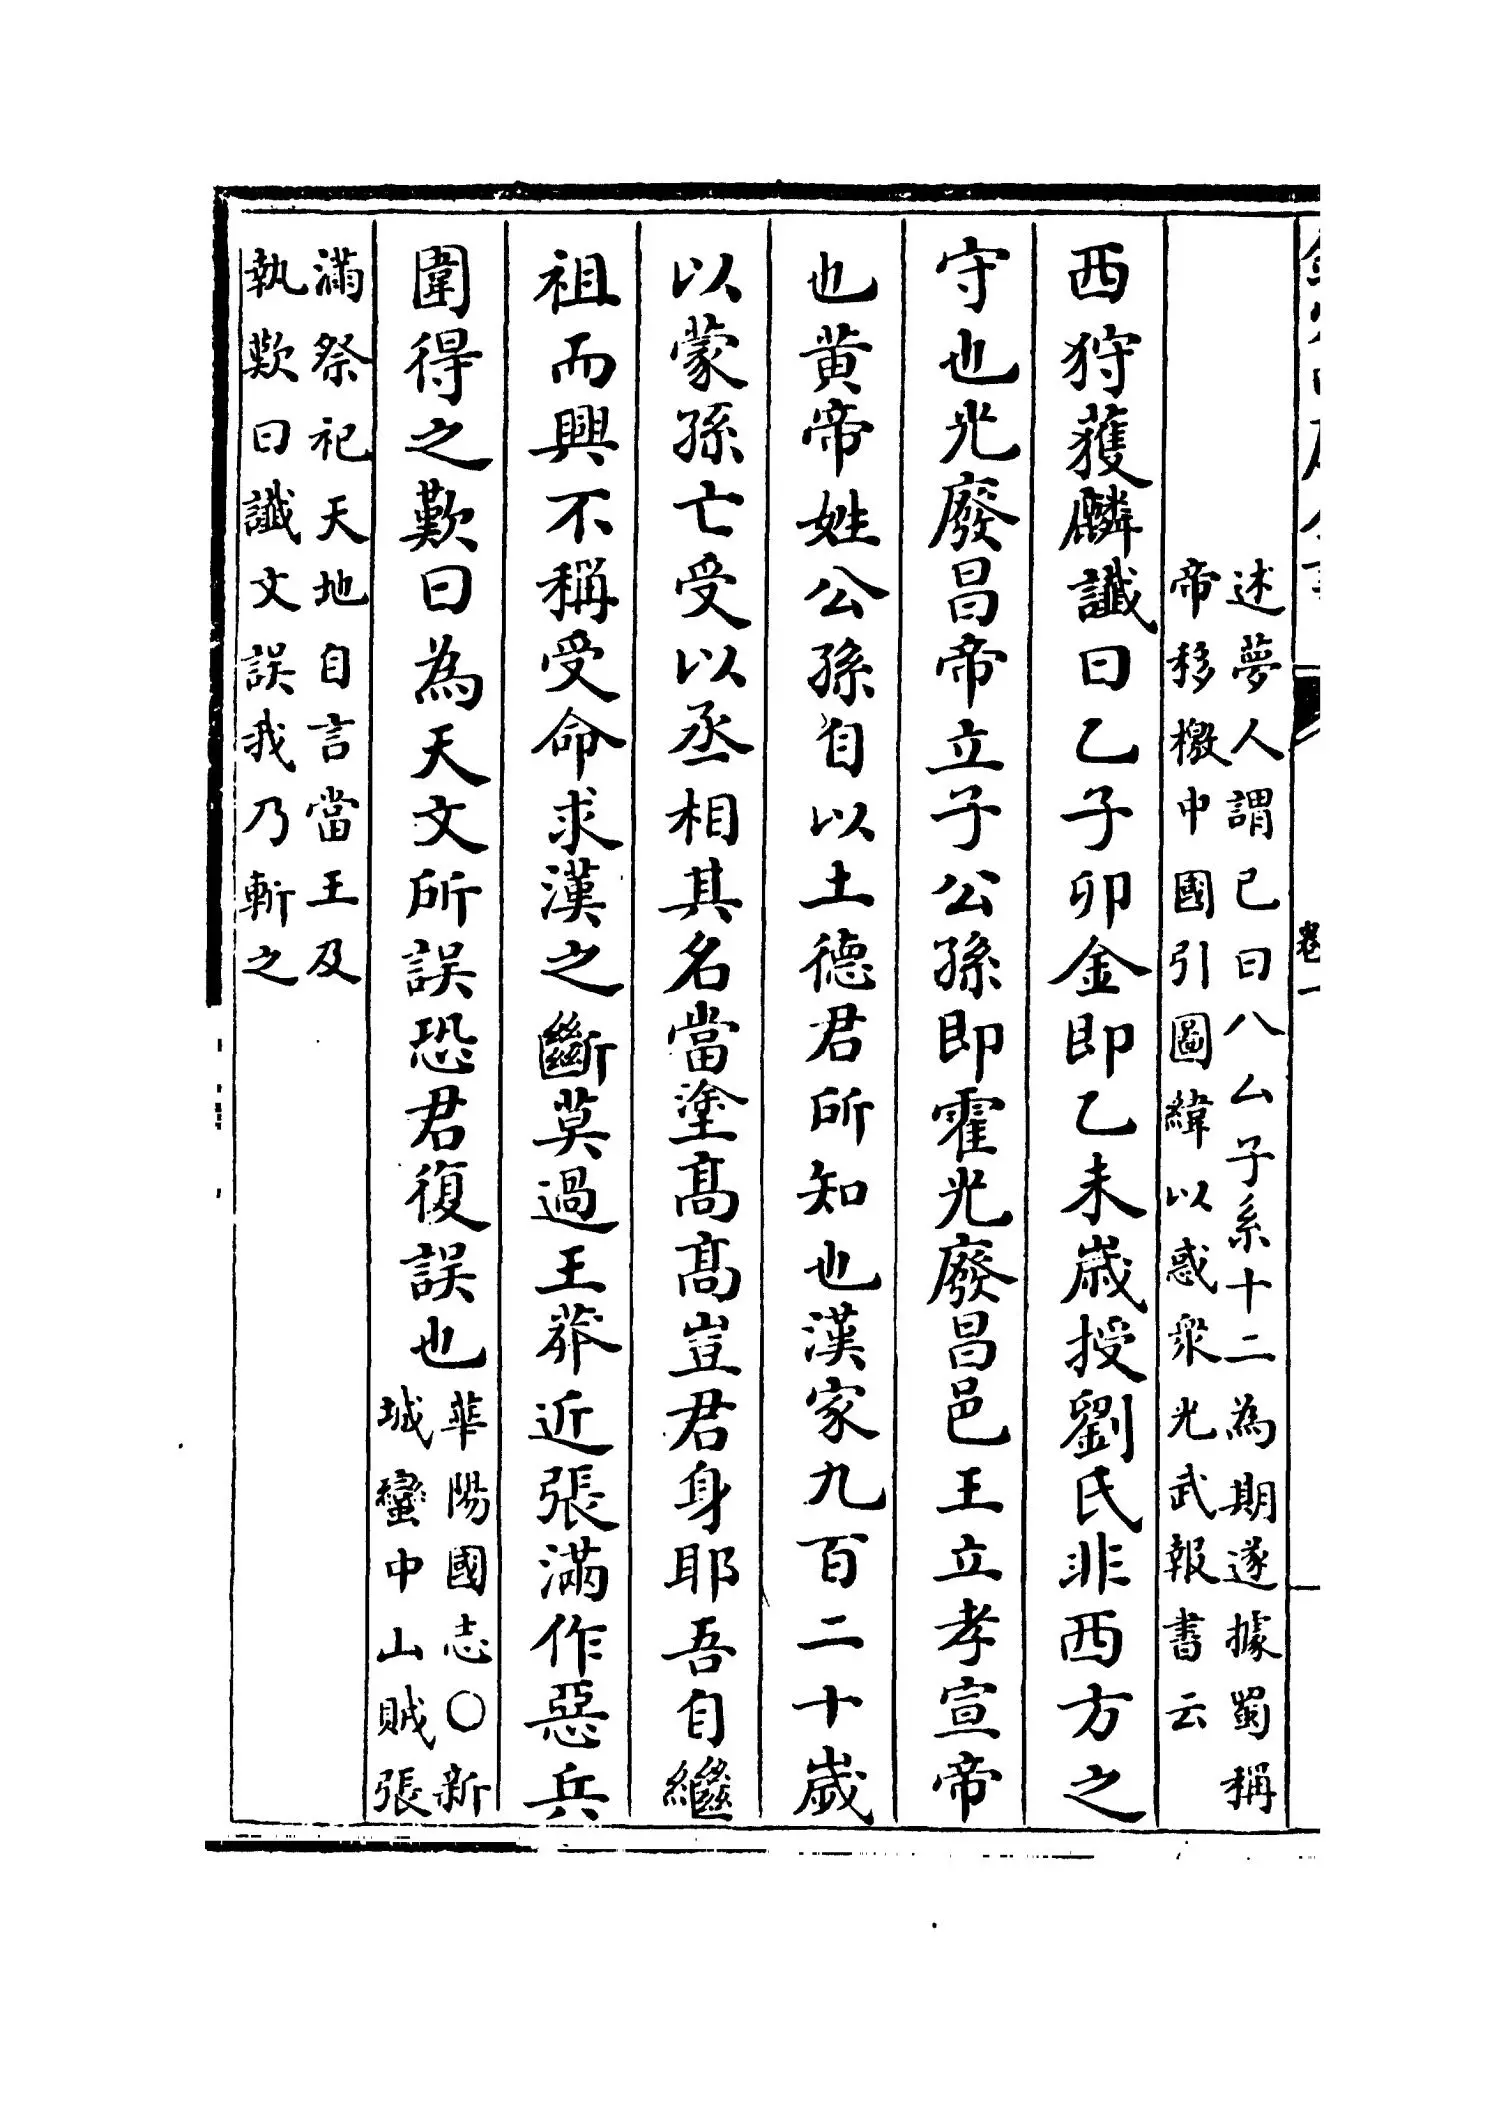 述夢人謂已曰八厶子系十二為期遂據蜀稱
帝移檄中國引圖緯以惑衆光武報書云
西狩獲麟讖曰乙子卯金即乙未歲授劉氏非西方之
守也光廢昌帝立子公孫即霍光廢昌邑王立孝宣帝
也黄帝姓公孫自以土德君所知也漢家九百二十歲
以蒙孫亡受以丞相其名當塗高高豈君身耶吾自繼
祖而興不稱受命求漢之斷莫過王莽近張滿作惡兵
圍得之歎曰為天文所誤恐君復誤也
華陽國志○新
城蠻中山賊張
滿祭祀天地自言當王及
執歎曰讖文誤我乃斬之
卷一